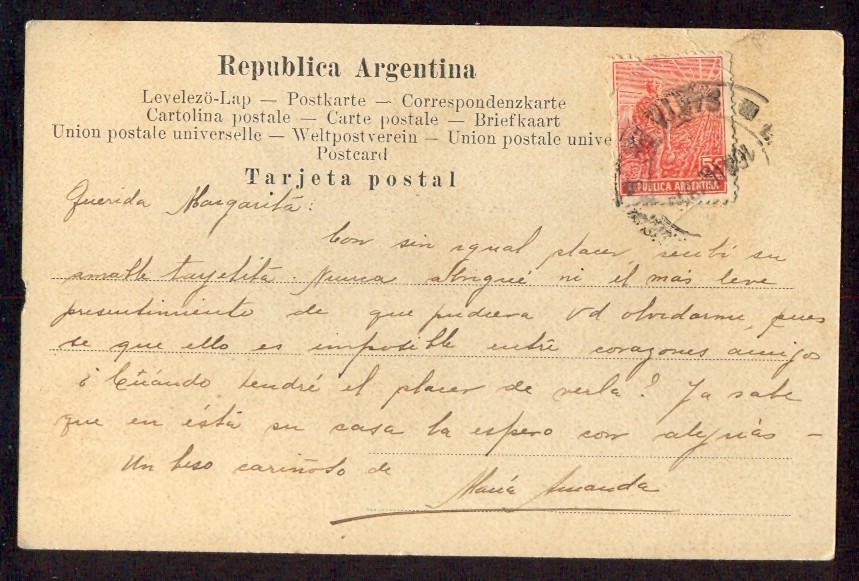 Republica Argentina
Levelezö-Lap — Postkarte — Correspondenzkarte
Cartolina postale — Carte postale — Briefkaart
Union postale universelle — Weltpostverein — Union postale unive
Postcard
Tarjeta postal
5
REPUBLICA ARGENTINA
Querida Margarita:
Con sin igual placer, recibí su
amable tarjetita. Nunca abrigué ni el más leve
presentimiento de que pudiera Vd olvidarme, pues
se que ello es imposible entre corazones amigos
¿Cuándo tendré el placer de verla? Ya sabe
que en ésta su casa la espero con alegrías —
Un beso cariñoso de
María Amanda